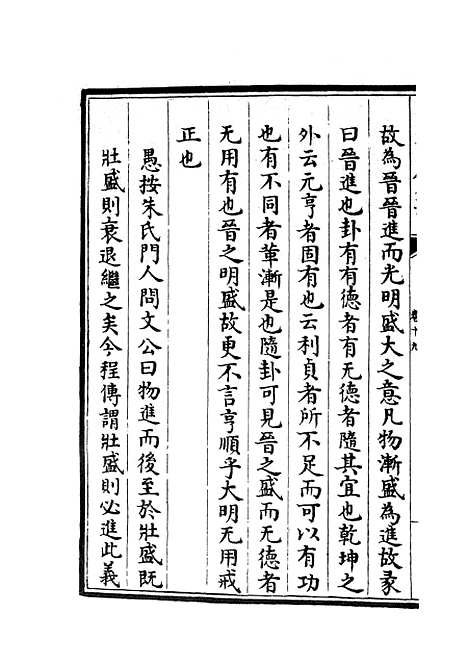 故為晉晉進而光明盛大之意凡物漸盛為進故彖
曰晉進也卦有有德者有无德者隨其宜也乾坤之
外云元亨者固有也云利貞者所不足而可以有功
也有不同者革漸是也隨卦可見晉之盛而无德者
无用有也晉之明盛故更不言亨順乎大明无用戒
正也
愚按朱氏門人問文公曰物進而後至於壯盛既
壯盛則衰退繼之矣今程傳謂壯盛則必進此義
卷十九